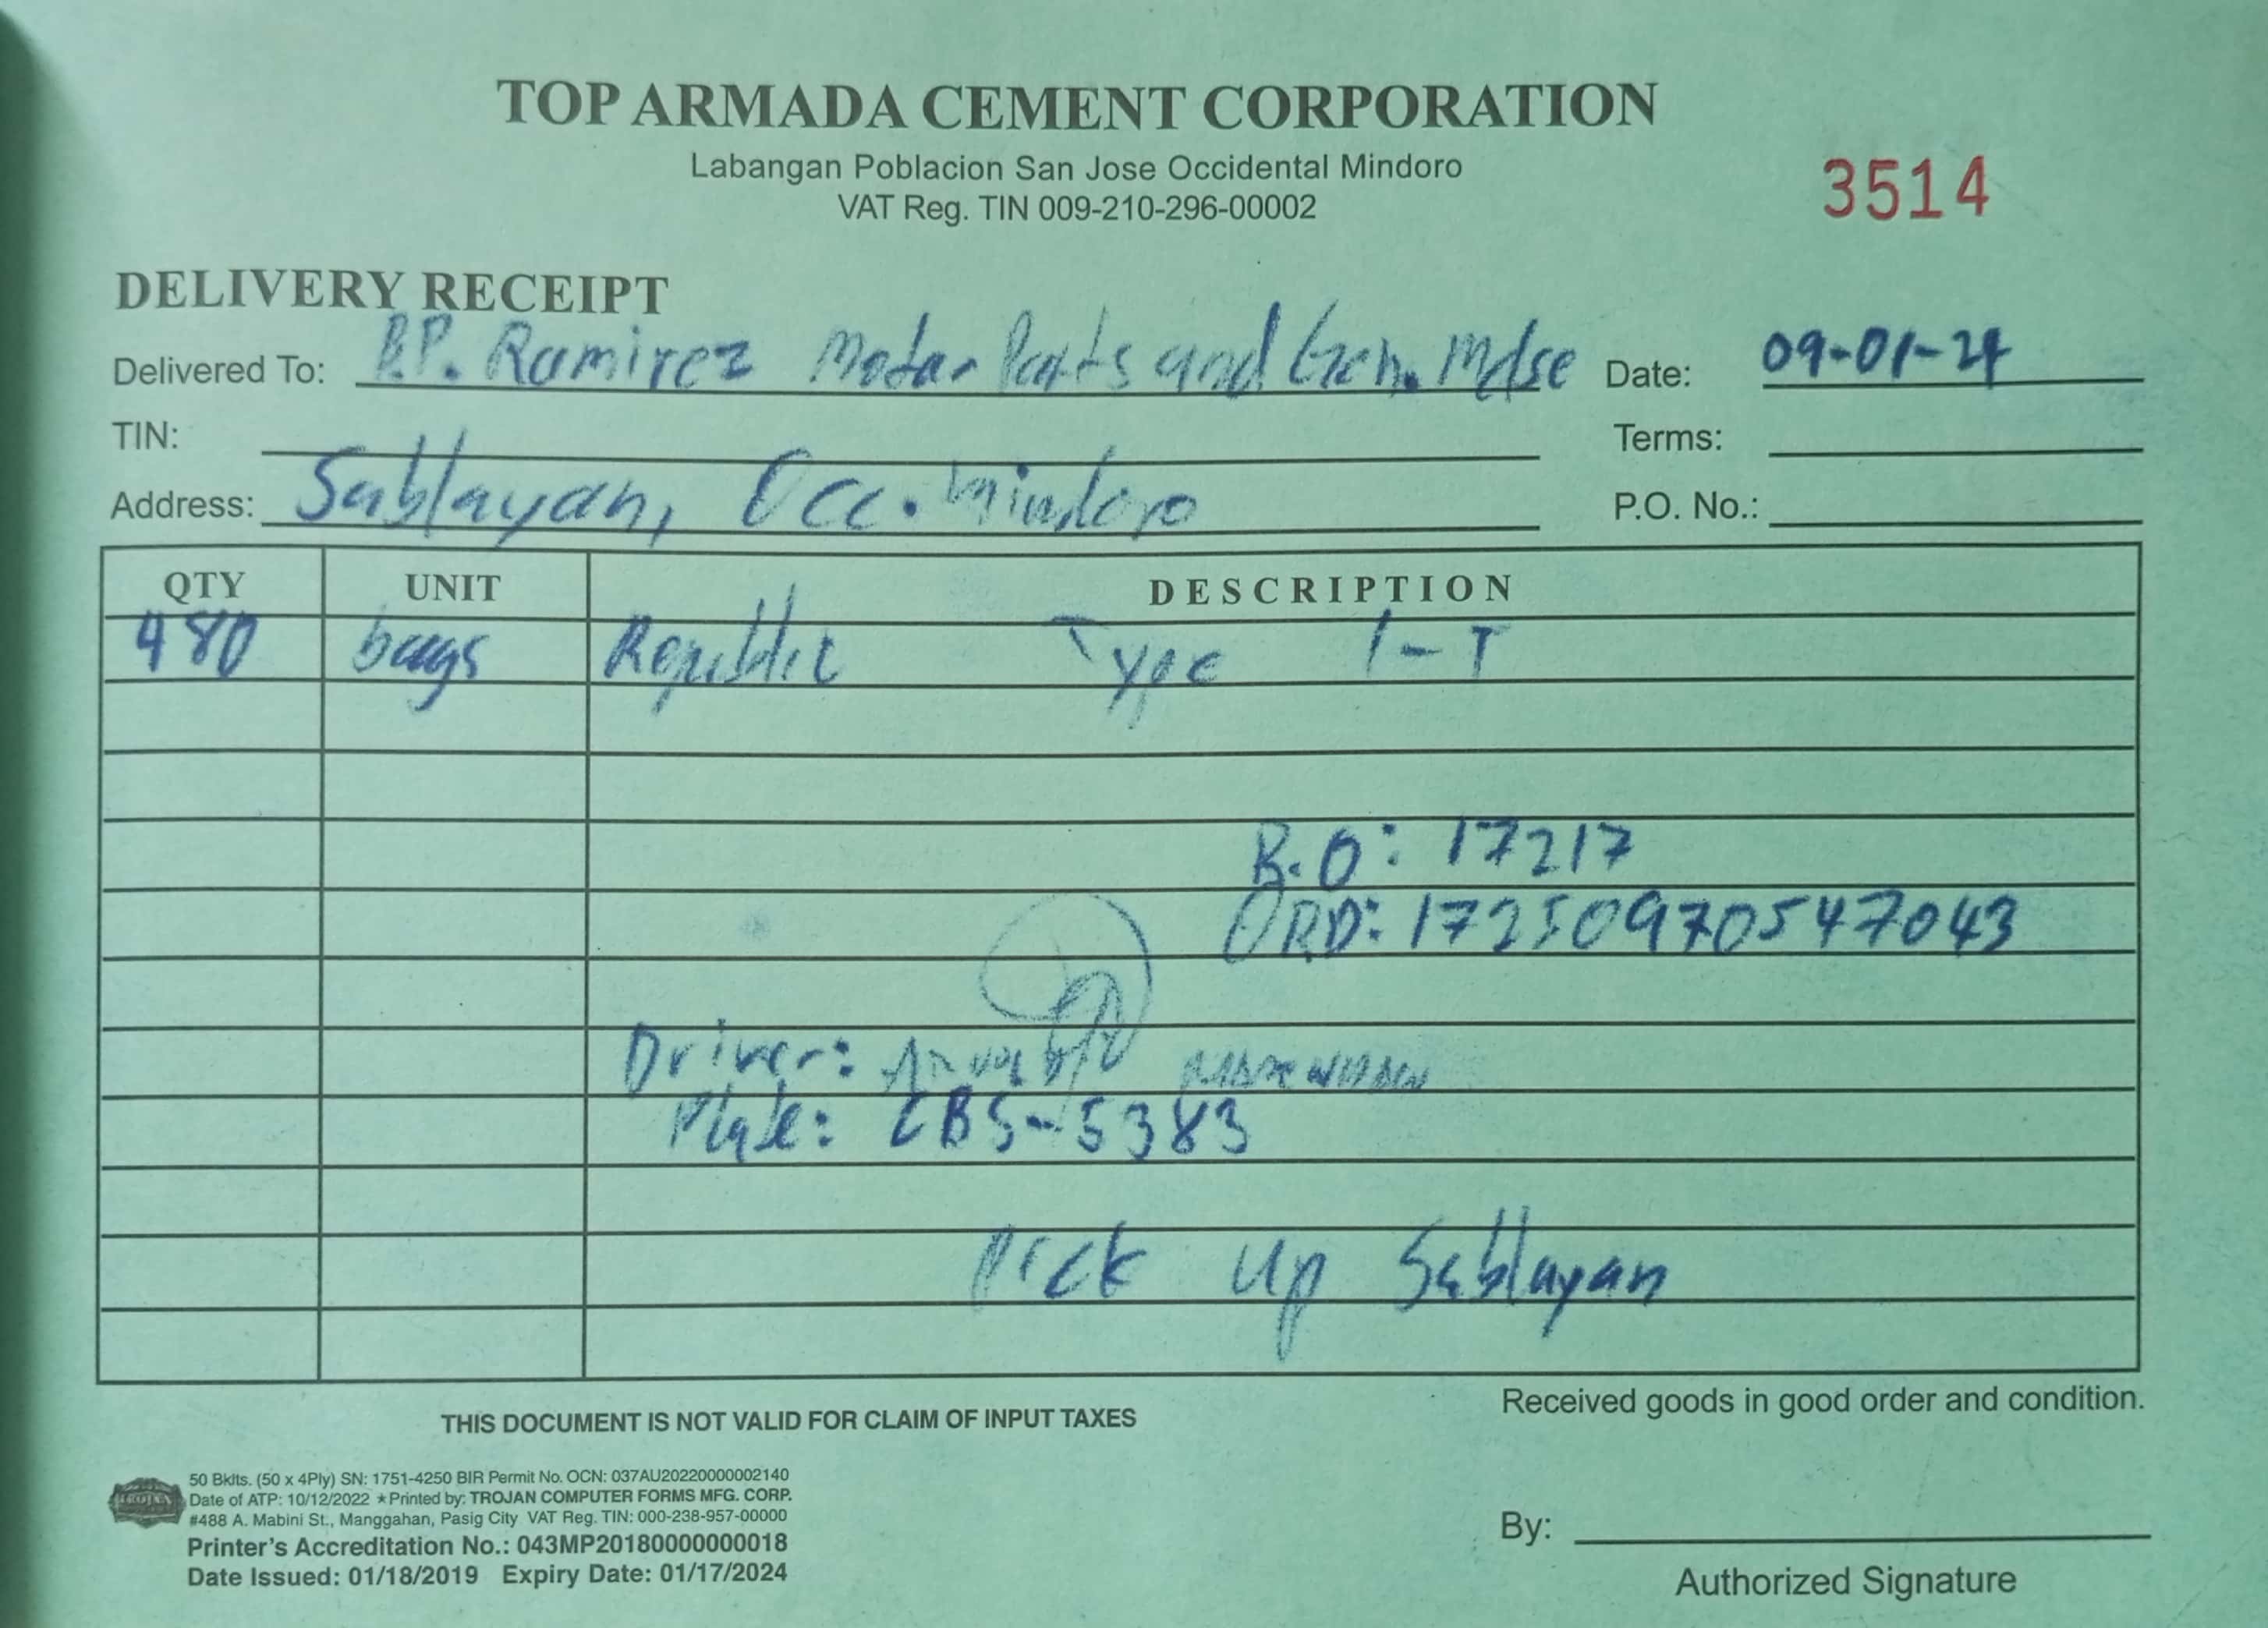 TOP ARMADA CEMENT CORPORATION
Labangan Poblacion San Jose Occidental Mindoro
VAT Reg. TIN 009-210-296-00002
3514
DELIVERY RECEIPT
Delivered To: B.P. Ramirez Motor Parts and Gen. Mdse Date: 09-01-24
TIN: Terms:
Address: Sablayan, Occ. Mindoro P.O. No.:
QTY UNIT DESCRIPTION
480 bags Republic Type 1-T
R.O: 17217
ORD: 17250970547043
Driver:
Plate: CBS-5383
Pick up Sablayan
THIS DOCUMENT IS NOT VALID FOR CLAIM OF INPUT TAXES
Received goods in good order and condition.
TROJAN
50 Bklts. (50 x 4Ply) SN: 1751-4250 BIR Permit No. OCN: 037AU20220000002140
Date of ATP: 10/12/2022 ★Printed by: TROJAN COMPUTER FORMS MFG. CORP.
#488 A. Mabini St., Manggahan, Pasig City VAT Reg. TIN: 000-238-957-00000
Printer's Accreditation No.: 043MP20180000000018
Date Issued: 01/18/2019 Expiry Date: 01/17/2024
By:
Authorized Signature